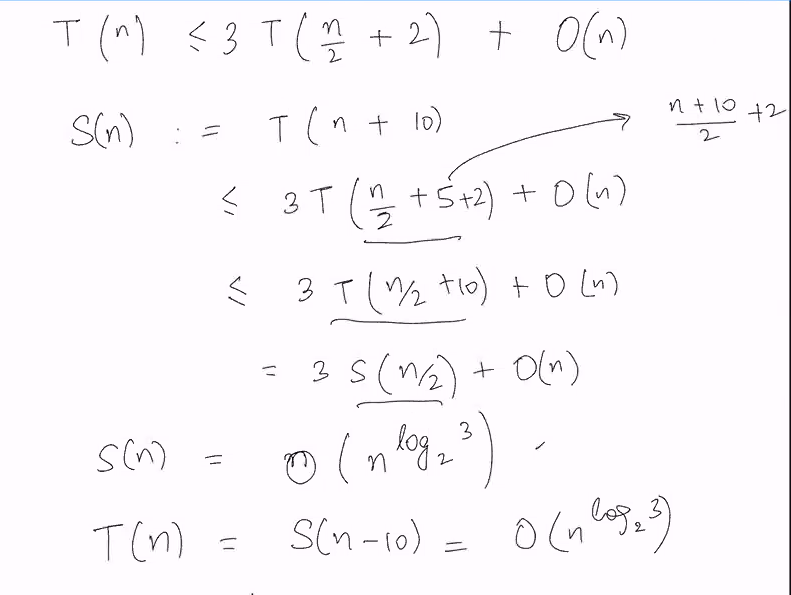 T(n) ≤ 3 T(n/2 + 2) + O(n)
S(n) := T(n + 10)
(n + 10)/2 + 2
≤ 3 T(n/2 + 5 + 2) + O(n)
≤ 3 T(n/2 + 10) + O(n)
= 3 S(n/2) + O(n)
S(n) = O(n^{log_2 3})
T(n) = S(n-10) = O(n^{log_2 3})